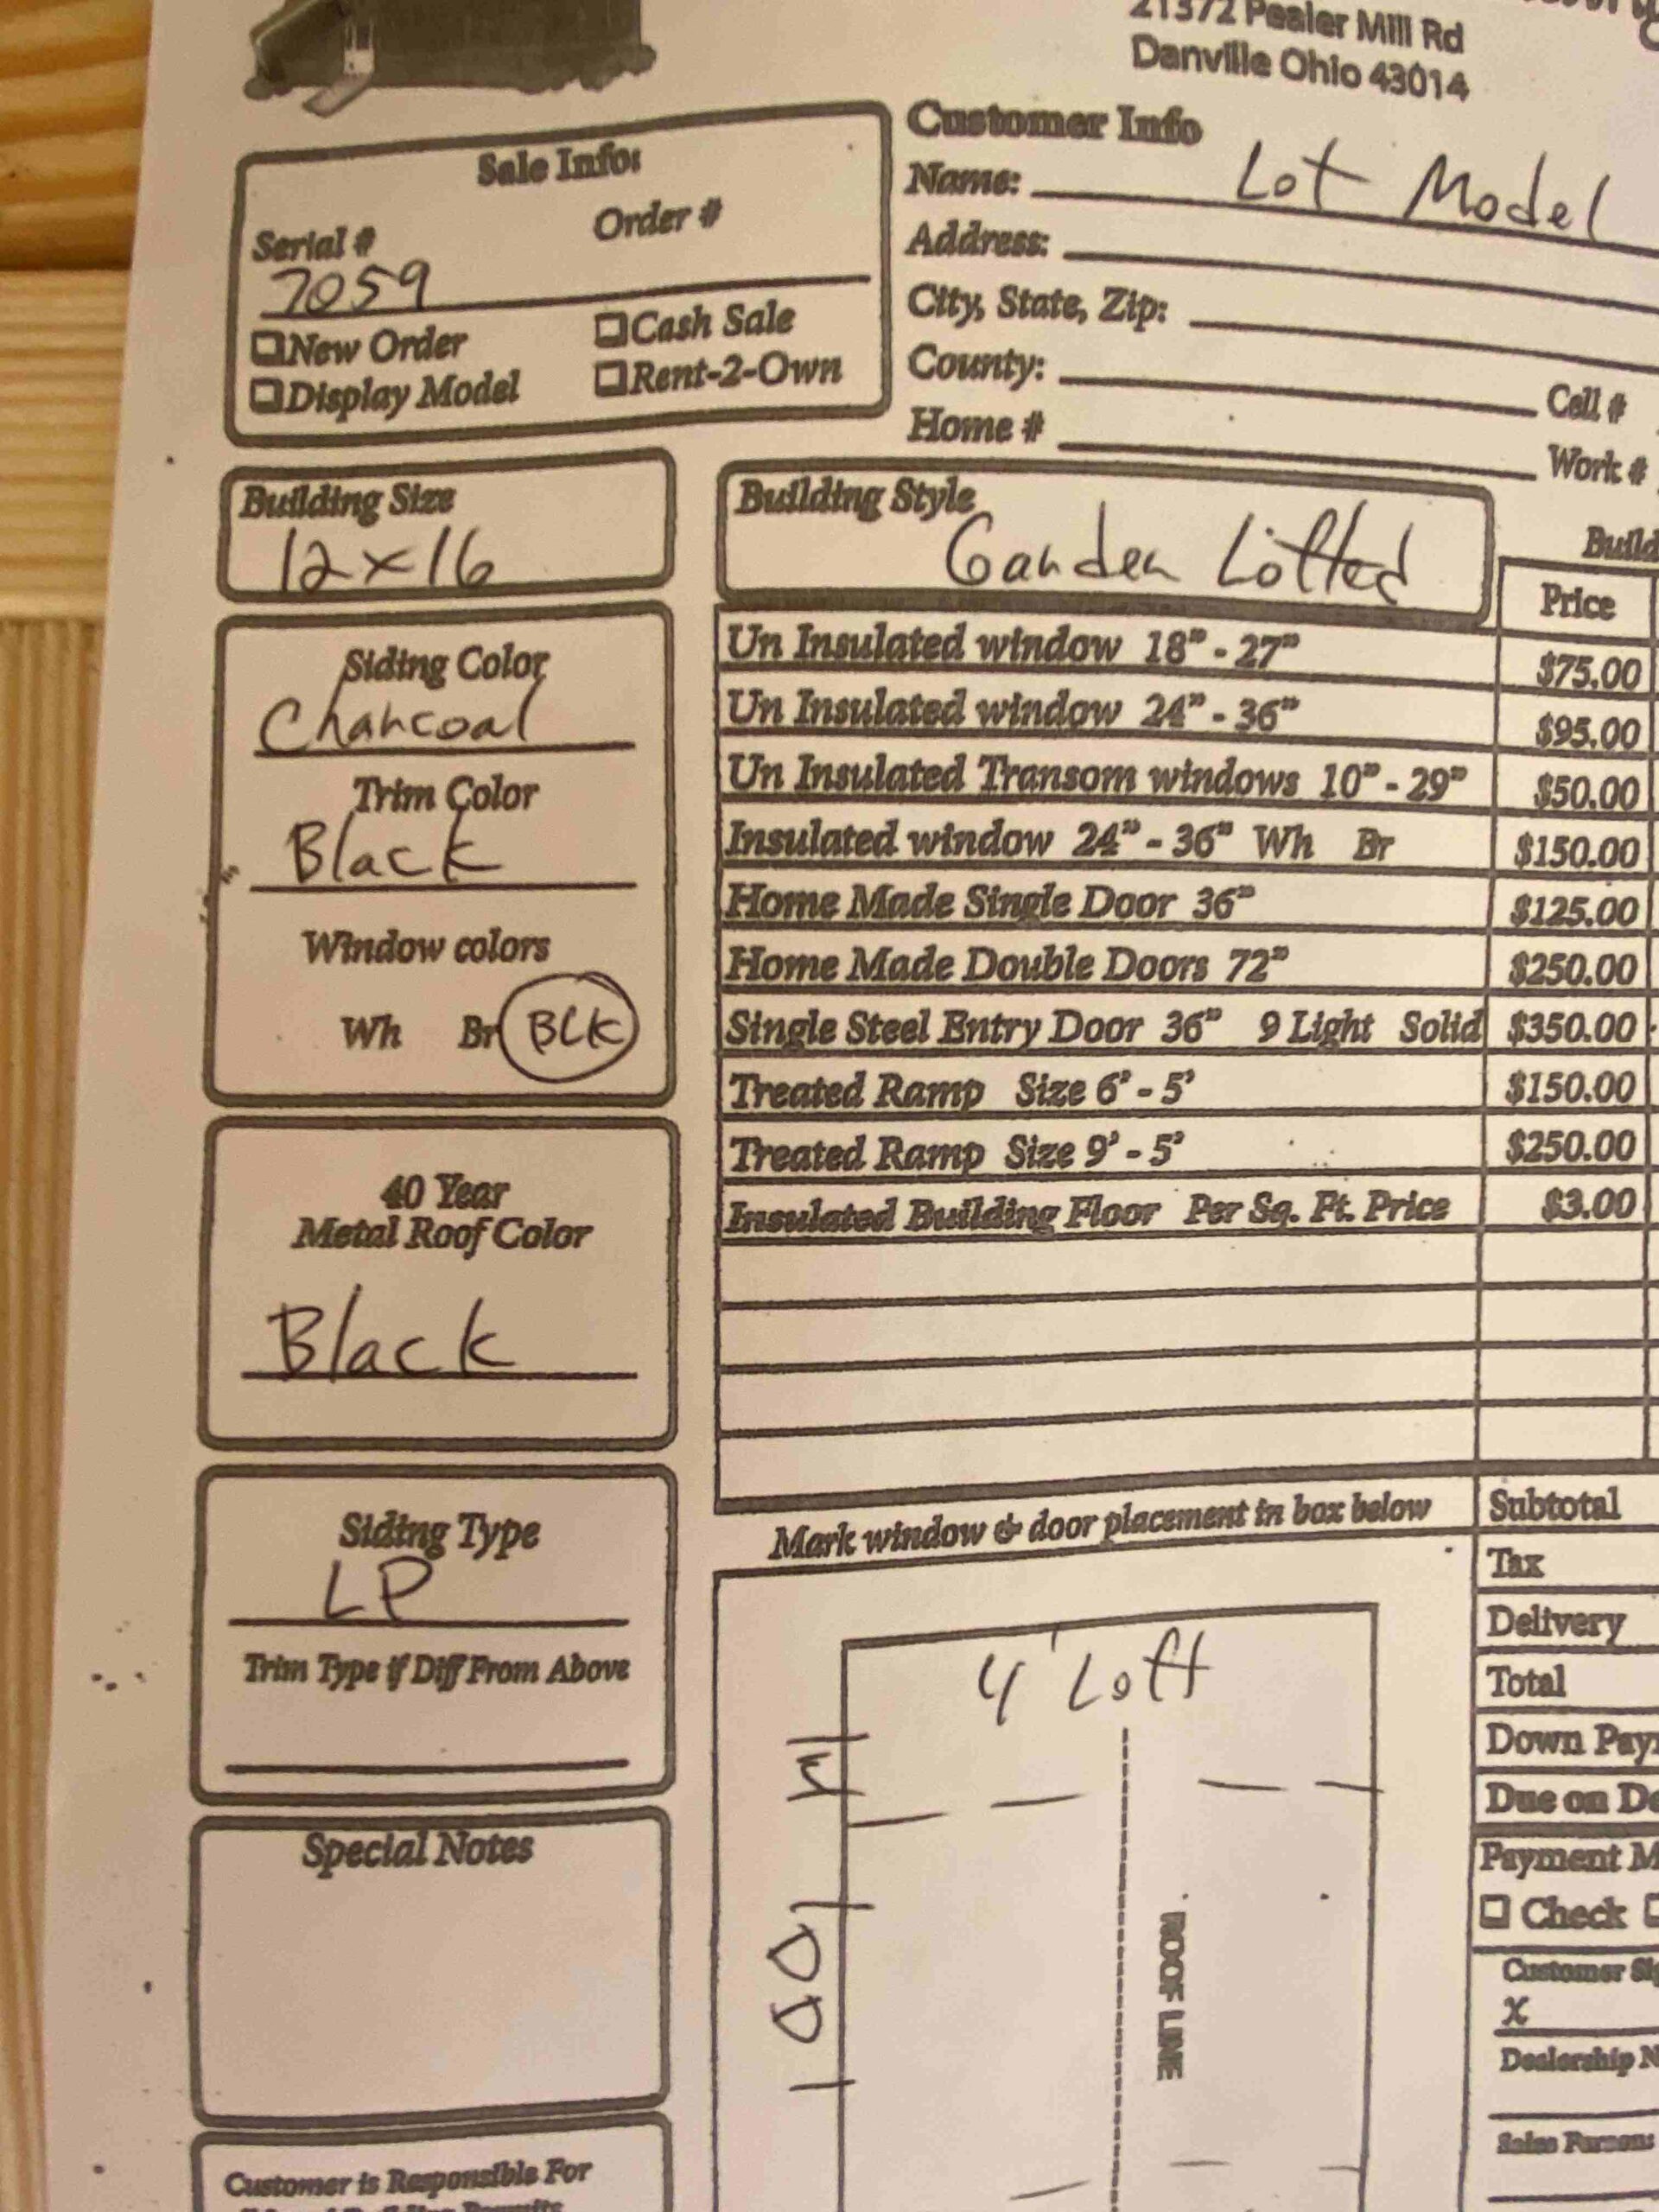 21372 Pealer Mill Rd
Danville Ohio 43014
Sale Info:
Serial # Order #
7059
New Order Cash Sale
Display Model Rent-2-Own
Customer Info
Name: Lot Model
Address:
City, State, Zip:
County:
Cell #
Home #
Work #
Building Size
12x16
Building Style
Garden Lofted
Siding Color
Charcoal
Trim Color
Black
Window colors
Wh Br BLK
40 Year
Metal Roof Color
Black
Siding Type
LP
Trim Type if Diff From Above
Special Notes
Customer is Responsible For
Price
Un Insulated window 18" - 27" $75.00
Un Insulated window 24" - 36" $95.00
Un Insulated Transom windows 10" - 29" $50.00
Insulated window 24" - 36" Wh Br $150.00
Home Made Single Door 36" $125.00
Home Made Double Doors 72" $250.00
Single Steel Entry Door 36" 9 Light Solid $350.00
Treated Ramp Size 6' - 5' $150.00
Treated Ramp Size 9' - 5' $250.00
Insulated Building Floor Per Sq. Ft. Price $3.00
Mark window & door placement in box below
4' Loft
W
DD
ROOF LINE
Subtotal
Tax
Delivery
Total
Down
Due on
Payment
Check
Customer
X
Dealership
Sales Person: